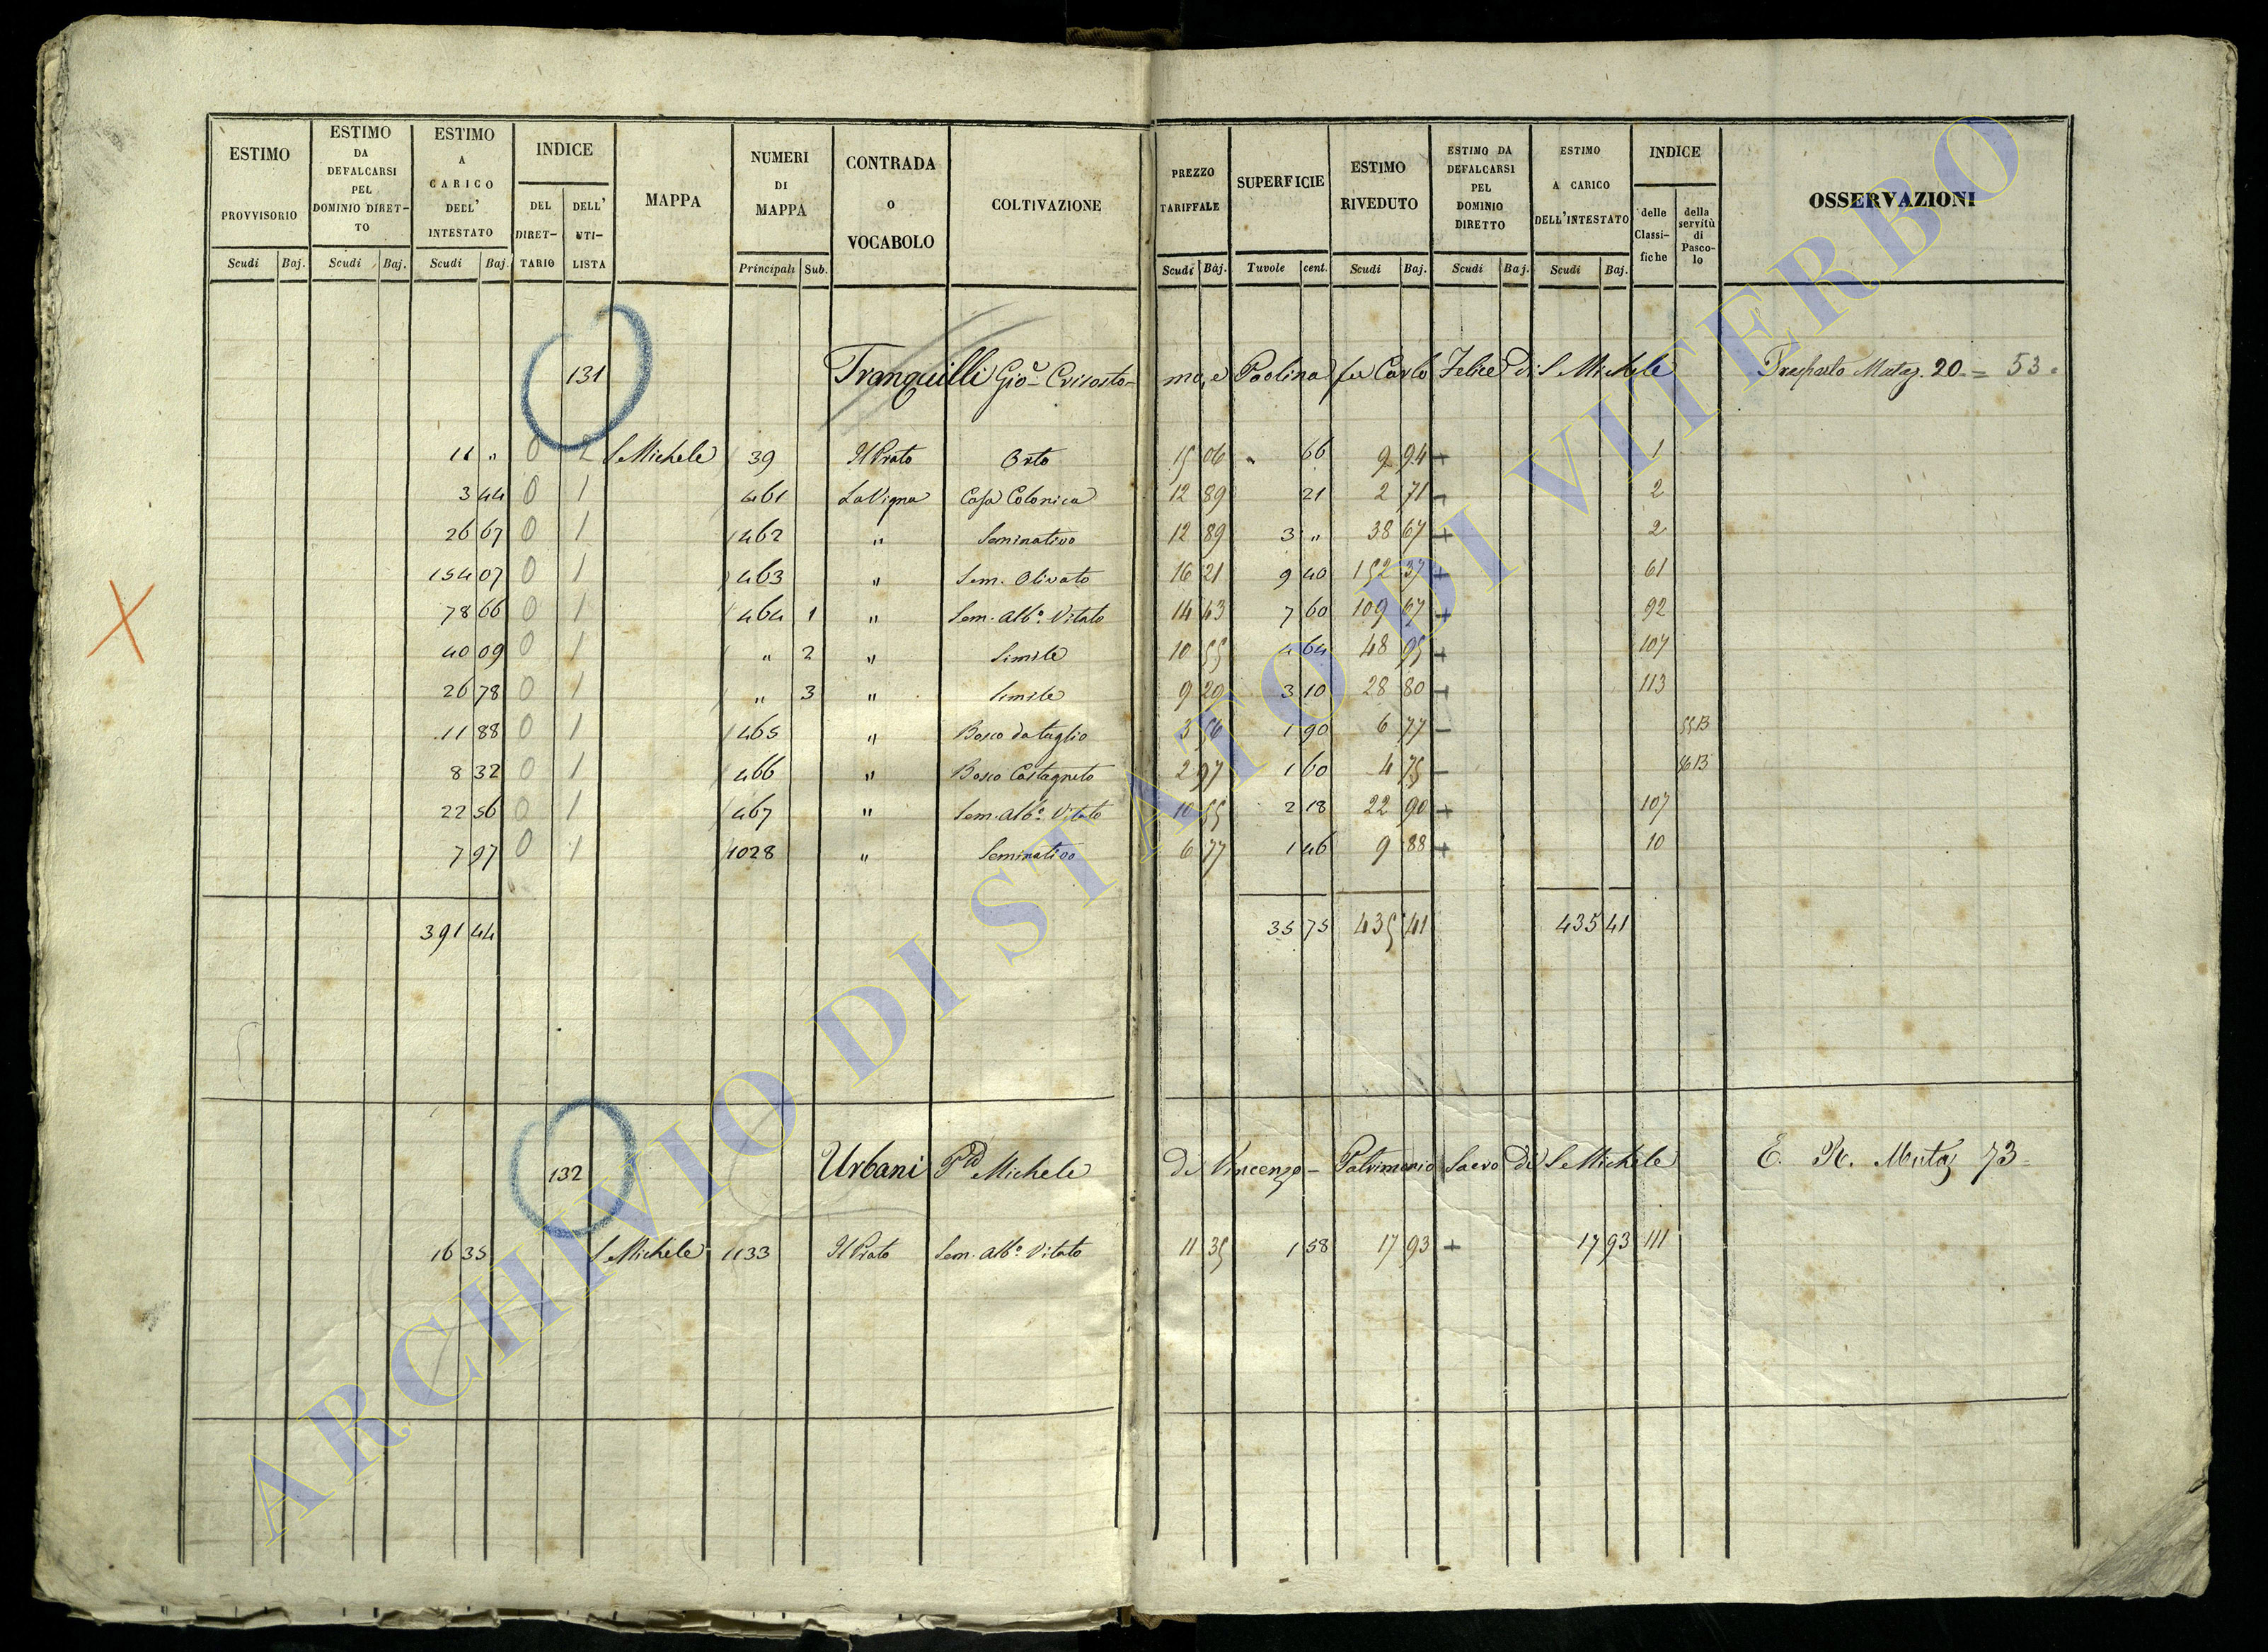 ESTIMO PROVVISORIO Scudi Baj.
ESTIMO DA DEFALCARSI PEL DOMINIO DIRETTO Scudi Baj.
ESTIMO A CARICO DELL' INTESTATO Scudi Baj.
INDICE DEL DIRETTARIO DELL' UTILISTA
MAPPA
NUMERI DI MAPPA Principali Sub.
CONTRADA o VOCABOLO
COLTIVAZIONE
PREZZO TARIFFALE Scudi Baj.
SUPERFICIE Tavole cent.
ESTIMO RIVEDUTO Scudi Baj.
ESTIMO DA DEFALCARSI PEL DOMINIO DIRETTO Scudi Baj.
ESTIMO A CARICO DELL'INTESTATO Scudi Baj.
INDICE delle Classifiche della servitù di Pascolo
OSSERVAZIONI
131 Tranquilli Gio. Crisostomo, e Paolina fu Carlo Felice di S Michele Trasporto Mutaz. 20 = 53 =
11 " 0 2 S Michele 39 Il Prato Orto 15 06 " 66 9 94 + 1
3 44 0 1 461 La Vigna Casa Colonica 12 89 21 2 71 - 2
26 67 0 1 462 " Seminativo 12 89 3 " 38 67 + 2
154 07 0 1 463 " Sem. Olivato 16 21 9 40 152 37 + 61
78 66 0 1 464 1 " Sem. Alb.o Vitato 14 43 7 60 109 67 + 92
40 09 0 1 " 2 " Simile 10 55 4 64 48 95 + 107
26 78 0 1 " 3 " Simile 9 29 3 10 28 80 + 113
11 88 0 1 465 " Bosco da taglio 3 56 1 90 6 77 - 55B
8 32 0 1 466 " Bosco Castagneto 2 97 1 60 4 75 - 56B
22 56 0 1 467 " Sem. Alb.o Vitato 10 55 2 18 22 90 + 107
7 97 0 1 1028 " Seminativo 6 77 1 46 9 88 + 10
391 44 35 75 435 41 435 41
132 Urbani P.d Michele di Vincenzo - Patrimonio Sacro di S Michele E. R. Mutaz 73 =
16 35 S Michele 1133 Il Prato Sem. Alb.o Vitato 11 35 1 58 17 93 + 17 93 111
ARCHIVIO DI STATO DI VITERBO